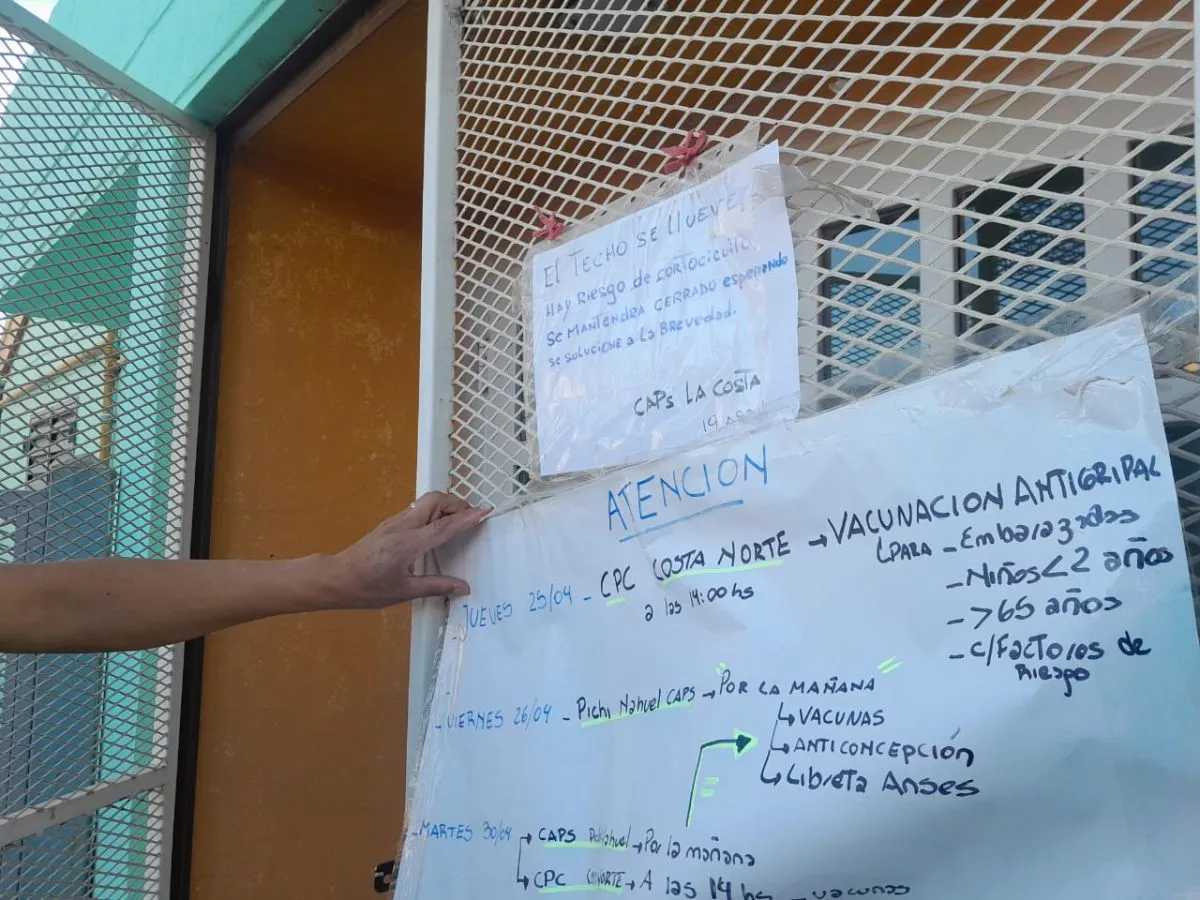 EL TECHO SE LLUEVE.
HAY RIESGO DE CORTOCICUITO
SE MANTENDRA CERRADO esperando
se solucione a la BREVEDAD.
CAPS LA COSTA
19
ATENCION
JUEVES 25/04 - CPC COSTA NORTE → VACUNACION ANTIGRIPAL
a las 14:00 hs
↳ PARA - Embarazadas
- Niños < 2 años
- > 65 años
- c/Factores de
Riesgo
- VIERNES 26/04 - Pichi Nahuel CAPS → "POR LA MAÑANA"
↳ VACUNAS
↳ ANTICONCEPCIÓN
↳ Libreta Anses
- MARTES 30/04 → CAPS → Por la mañana
↳ CPC → A las 14 hs - vacunas